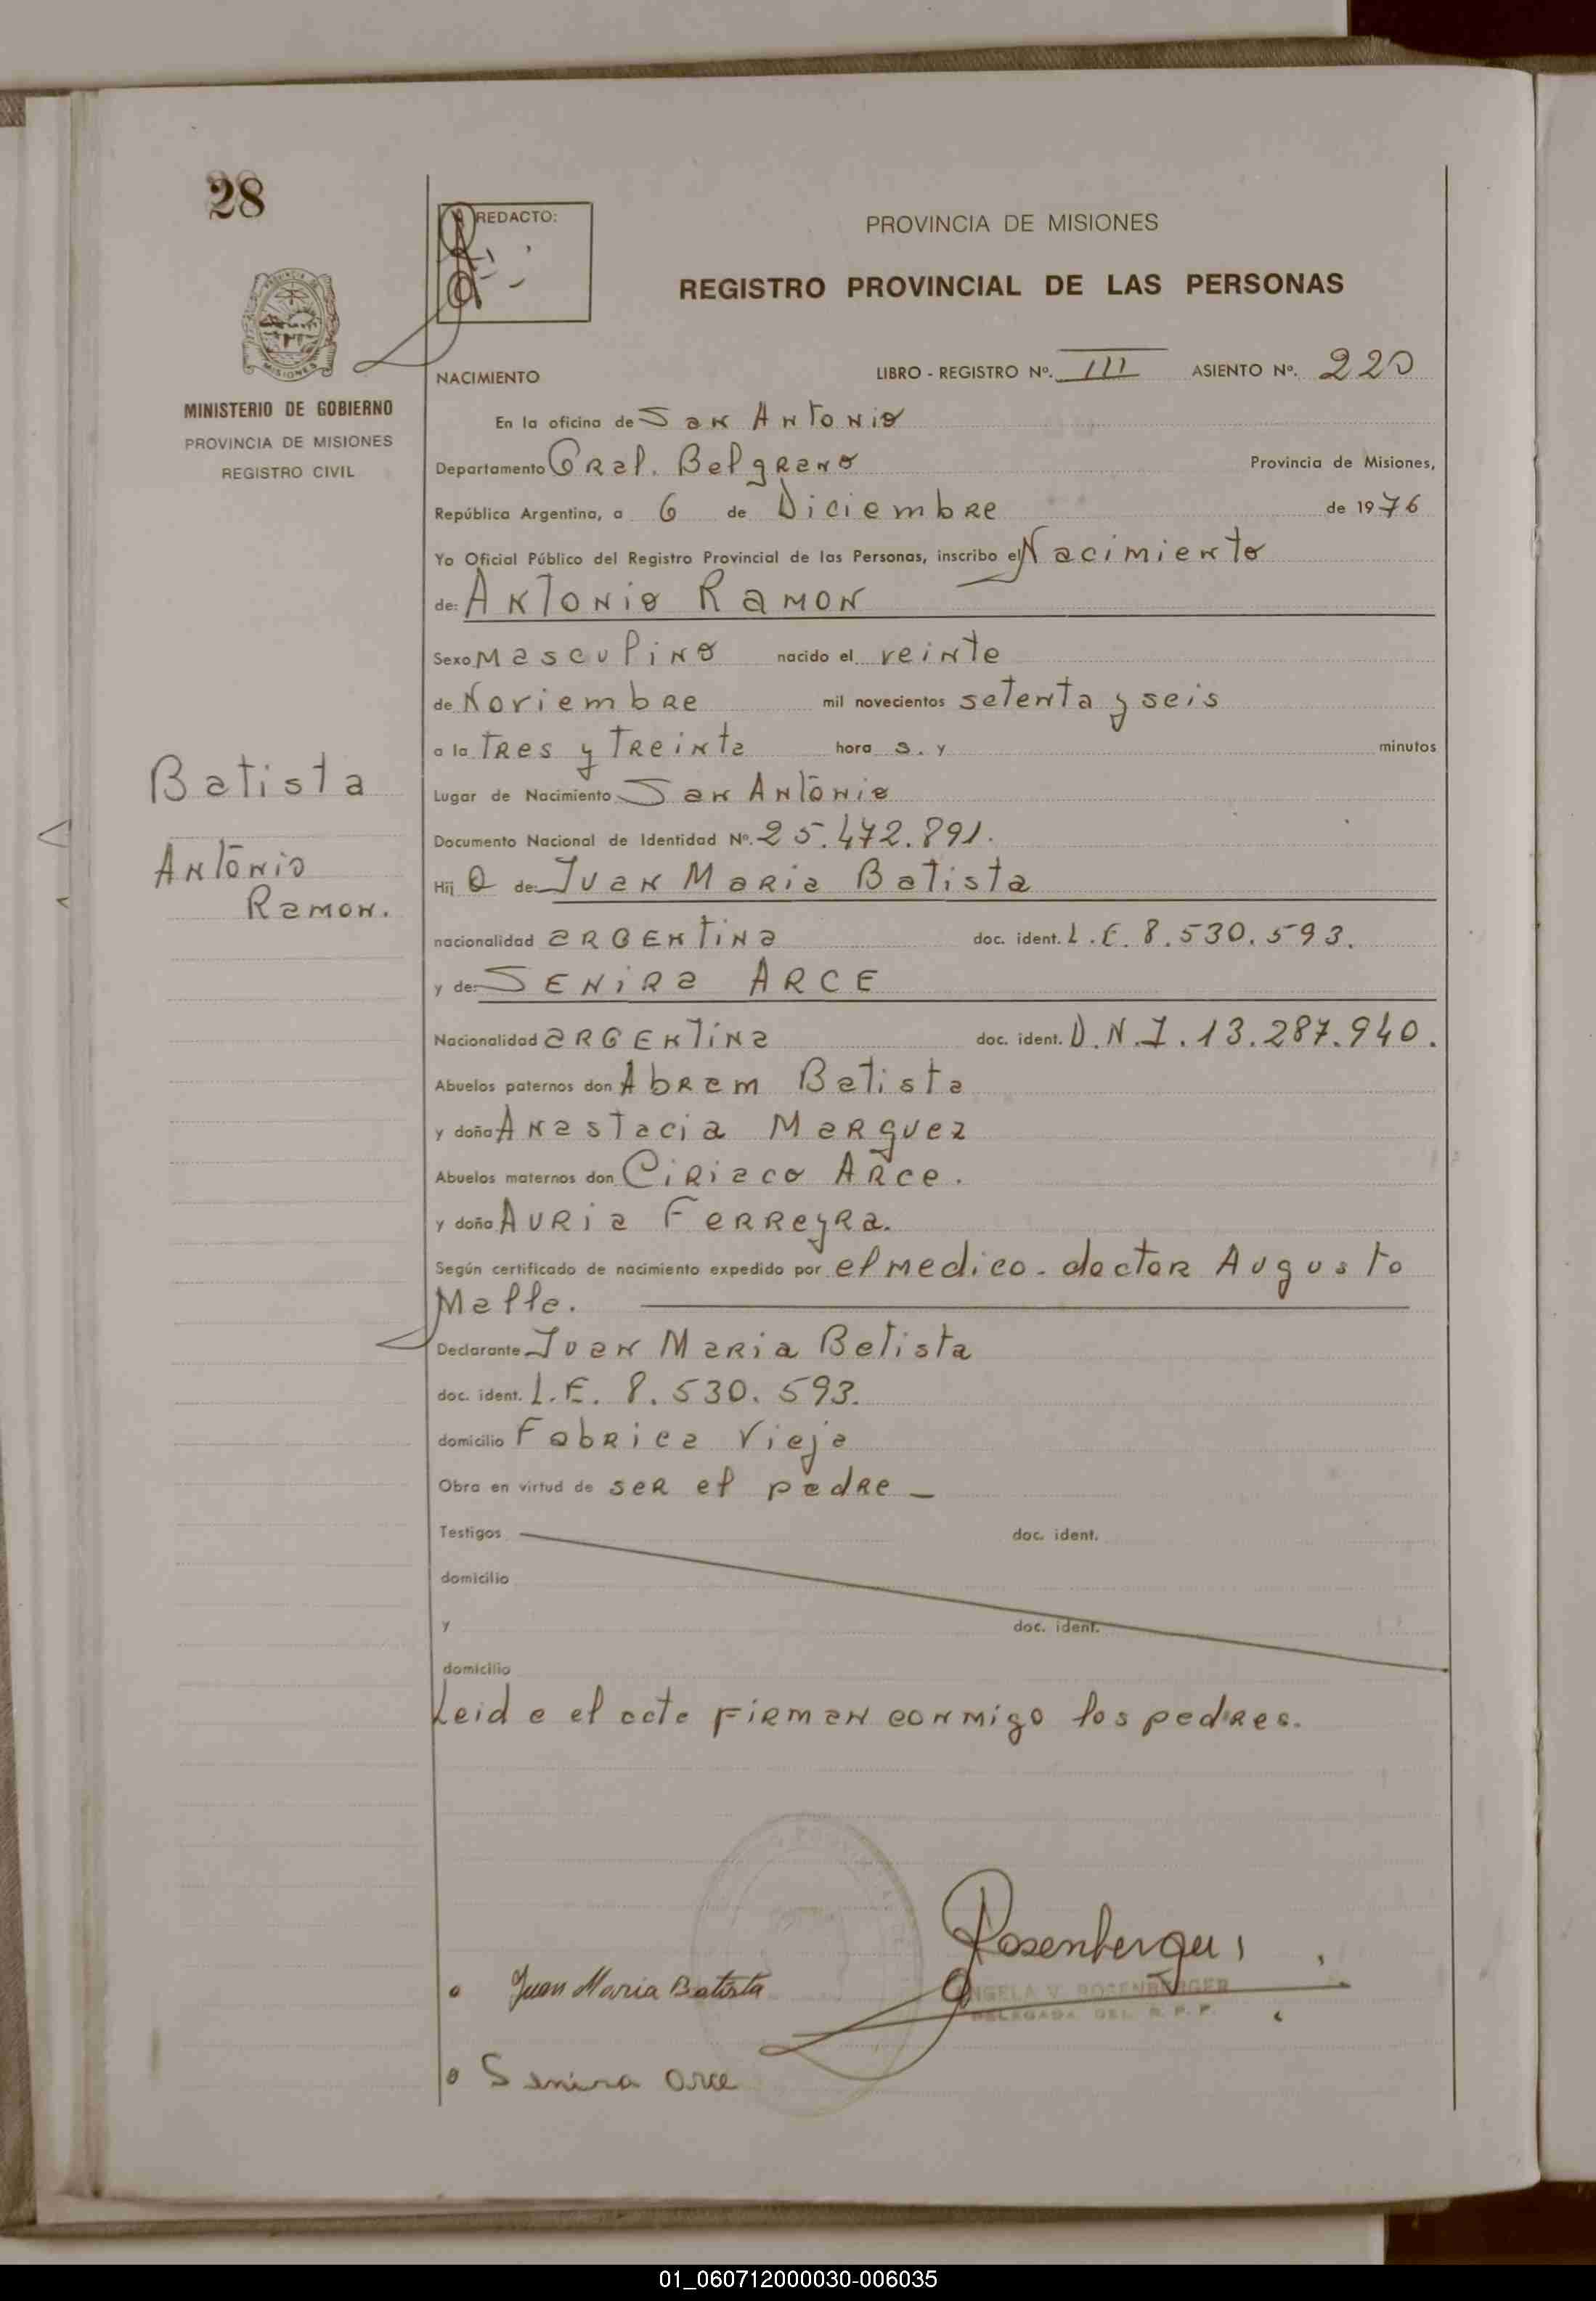 28
REDACTO:
PROVINCIA DE MISIONES
REGISTRO PROVINCIAL DE LAS PERSONAS
MINISTERIO DE GOBIERNO
PROVINCIA DE MISIONES
REGISTRO CIVIL
NACIMIENTO LIBRO - REGISTRO Nº. III ASIENTO Nº. 220
En la oficina de San Antonio
Departamento Gral. Belgrano Provincia de Misiones,
República Argentina, a 6 de Diciembre de 1976
Yo Oficial Público del Registro Provincial de las Personas, inscribo el Nacimiento
de: Antonio Ramon
Sexo Masculino nacido el veinte
de Noviembre mil novecientos setenta y seis
a la tres y treinta hora s. y minutos
Batista
Antonio
Ramon.
Lugar de Nacimiento San Antonio
Documento Nacional de Identidad Nº. 25.472.891.
Hij o de: Juan Maria Batista
nacionalidad argentina doc. ident. L.E. 8.530.593.
y de: Senira Arce
Nacionalidad argentina doc. ident. D.N.I. 13.287.940.
Abuelos paternos don Abram Batista
y doña Anastacia Marquez
Abuelos maternos don Ciriaco Arce.
y doña Auria Ferreyra.
Según certificado de nacimiento expedido por el medico-doctor Augusto
Malle.
Declarante Juan Maria Batista
doc. ident. L.E. 8.530.593.
domicilio Fabrica Vieja
Obra en virtud de ser el padre -
Testigos doc. ident.
domicilio
y doc. ident.
domicilio
Leida el acta firman conmigo los padres.
Rosenberger
Juan Maria Batista
ANGELA V. ROSENBERGER
DELEGADA DEL R. P. P.
Senira Arce
01_060712000030-006035